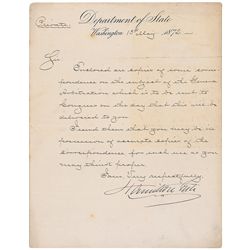 Department of State
Private
Washington 13th May 1872
Sir
Enclosed are copies of some cor-
respondence on the subject of the Geneva
Arbitration which is to be sent to
Congress on the day that this will be
delivered to you
I send them that you may be in
possession of accurate copies of the
correspondence for such use as you
may think proper.
I am, Very respectfully,
Hamilton Fish